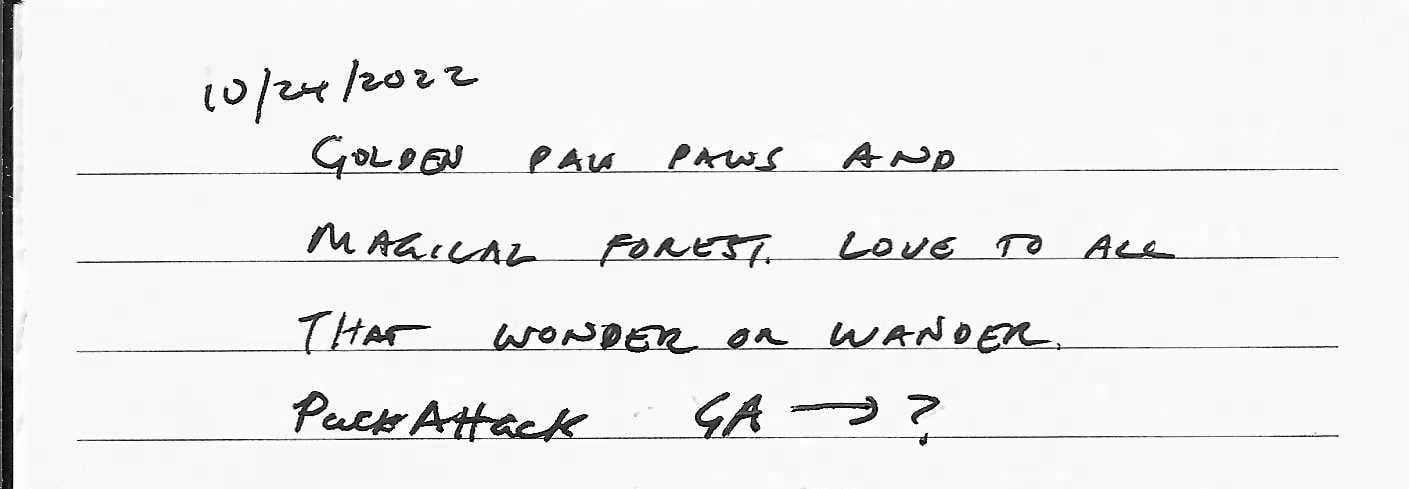 10/24/2022
GOLDEN PAW PAWS AND
MAGICAL FOREST. LOVE TO ALL
THAT WONDER OR WANDER.
PackAttack GA → ?